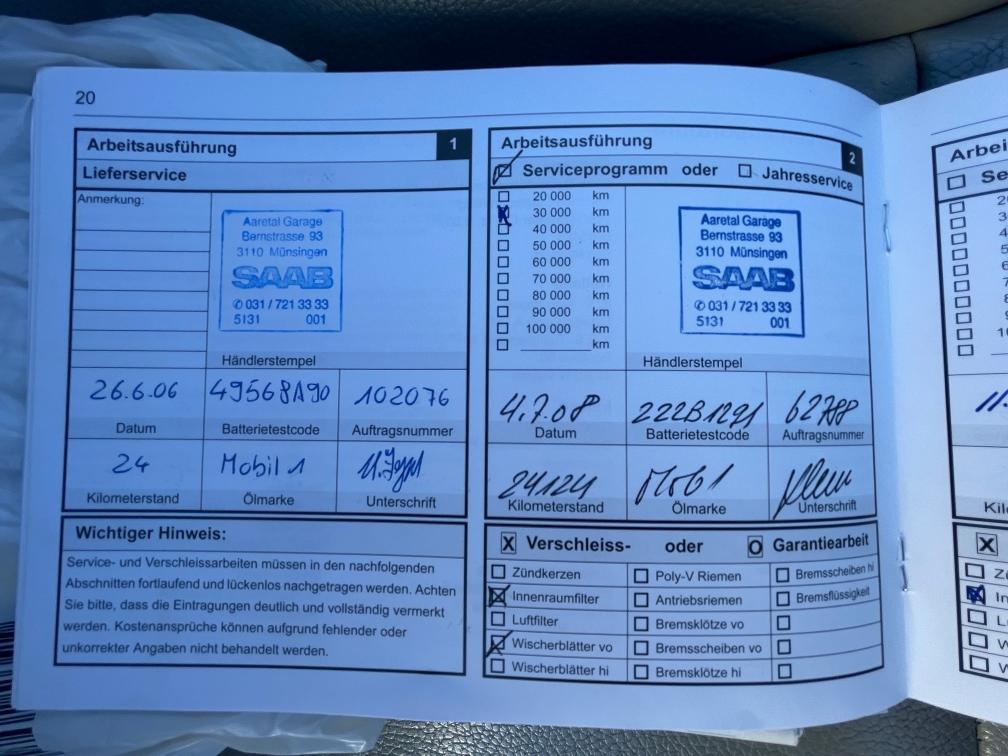 20
Arbeitsausführung 1
Lieferservice
Anmerkung:
Aaretal Garage
Bernstrasse 93
3110 Münsingen
SAAB
✆ 031 / 721 33 33
5131 001
Händlerstempel
26.6.06 49568A90 102076
Datum Batterietestcode Auftragsnummer
24 Mobil 1
Kilometerstand Ölmarke Unterschrift
Wichtiger Hinweis:
Service- und Verschleissarbeiten müssen in den nachfolgenden
Abschnitten fortlaufend und lückenlos nachgetragen werden. Achten
Sie bitte, dass die Eintragungen deutlich und vollständig vermerkt
werden. Kostenansprüche können aufgrund fehlender oder
unkorrekter Angaben nicht behandelt werden.
Arbeitsausführung 2
Serviceprogramm oder Jahresservice
20 000 km
30 000 km
40 000 km
50 000 km
60 000 km
70 000 km
80 000 km
90 000 km
100 000 km
km
Aaretal Garage
Bernstrasse 93
3110 Münsingen
SAAB
✆ 031 / 721 33 33
5131 001
Händlerstempel
4.7.08 222B1291 62788
Datum Batterietestcode Auftragsnummer
24124 Mobil 1
Kilometerstand Ölmarke Unterschrift
X Verschleiss- oder O Garantiearbeit
Zündkerzen Poly-V Riemen Bremsscheiben hi
Innenraumfilter Antriebsriemen Bremsflüssigkeit
Luftfilter Bremsklötze vo
Wischerblätter vo Bremsscheiben vo
Wischerblätter hi Bremsklötze hi
Arbei
Se
Kil
X